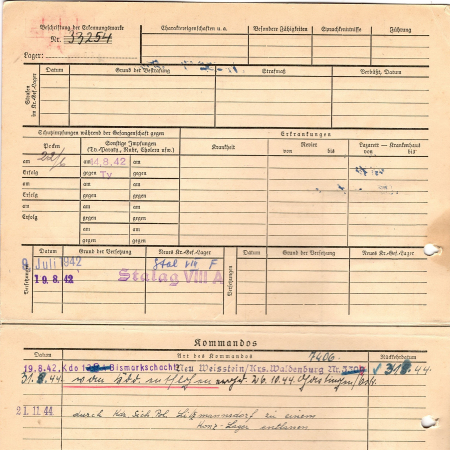 Beschriftung der Erkennungsmarke
Nr. 33254
Lager:
Charaktereigenschaften u. a.
Besondere Fähigkeiten
Sprachkenntnisse
Führung
Strafen im Kr.-Gef.-Lager
Datum
Grund der Bestrafung
Strafmaß
Verbüßt, Datum
Schutzimpfungen während der Gefangenschaft gegen
Erkrankungen
Pocken
Sonstige Impfungen
(Ty.-Paraty., Ruhr, Cholera usw.)
Krankheit
Revier
von bis
Lazarett — Krankenhaus
von bis
am 22/6
am 14.8.42
am
Erfolg
gegen Ty
gegen
am
am
am
Erfolg
gegen
gegen
am
am
am
Erfolg
gegen
gegen
am
am
gegen
gegen
Versetzungen
Datum
Grund der Versetzung
Neues Kr.-Gef.-Lager
Versetzungen
Datum
Grund der Versetzung
Neues Kr.-Gef.-Lager
Juli 1942
Stal VIII F
19.8.42
Stalag VIII A
Kommandos
Datum
Art des Kommandos
Rückkehrdatum
7406
19.8.42. Kdo Bismarkschacht Neu Weisstein/Krs. Waldenburg Nr.
31.8.44.
31.8.44.
26.10.44
21.11.44
durch Litzmannsdorf zu einem
Konz-Lager entlassen